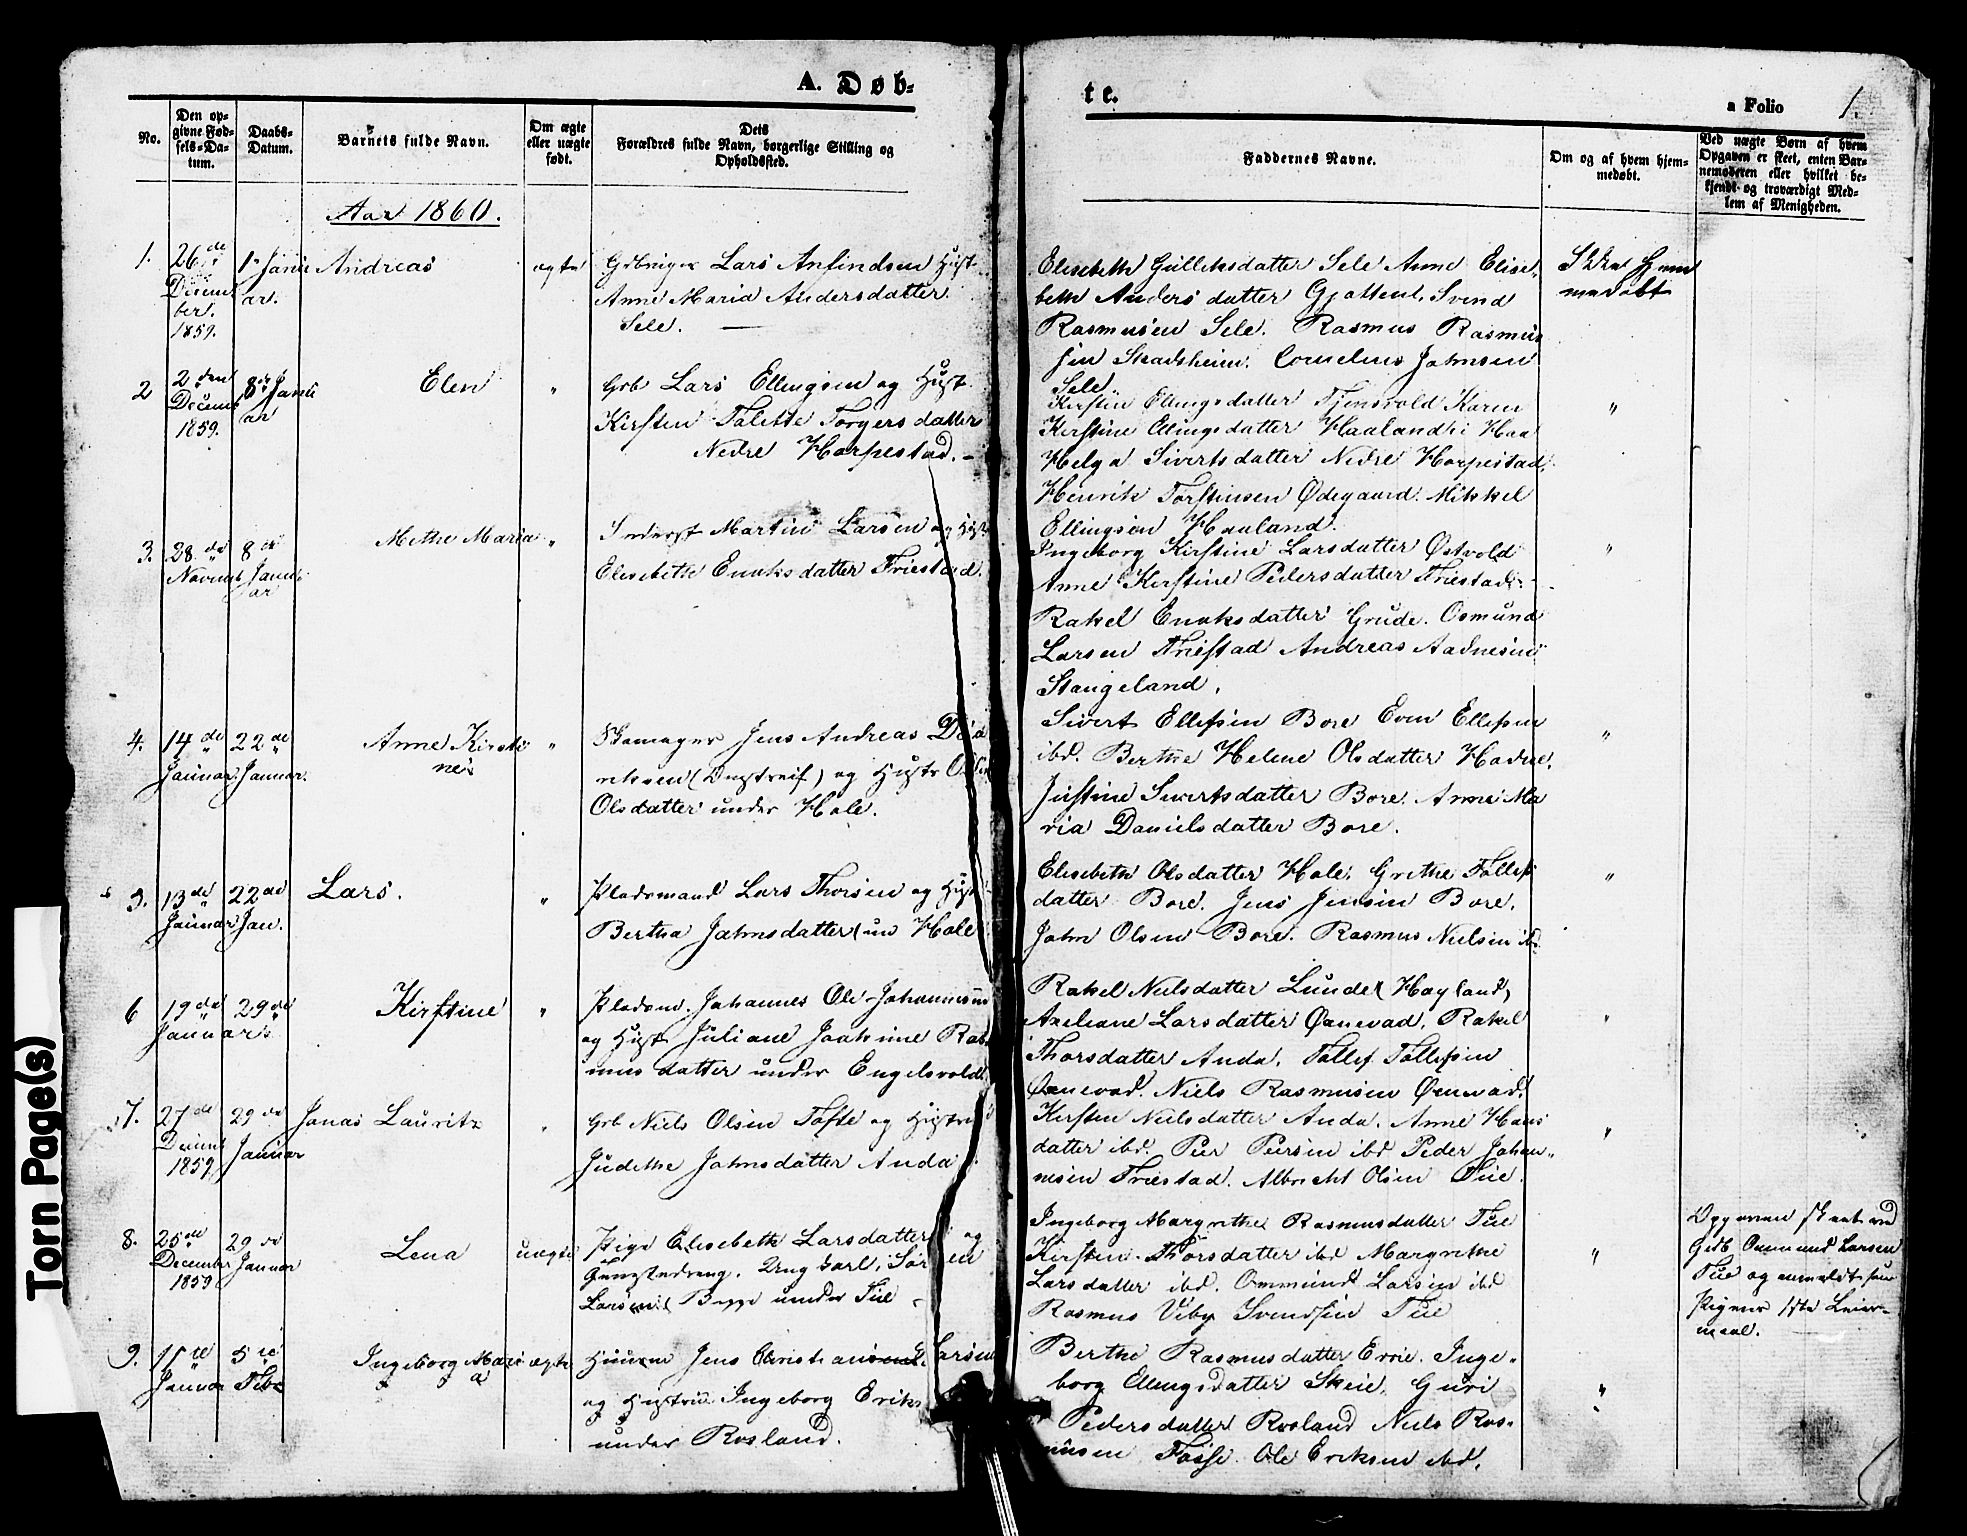 A. Døb-
te.
a Folio 1.
No.
Den op-
givne Fød-
sels-Da-
tum.
Daabs-
Datum.
Barnets fulde Navn.
Om ægte
eller uægte
født.
Dets
Forældres fulde Navn, borgerlige Stilling og
Opholdssted.
Faddernes Navne.
Om og af hvem hjem-
medøbt.
Ved uægte Børn af hvem
Opgaven er skeet, enten Bar-
nemoderen eller hvilket be-
kjendt og troværdigt Med-
lem af Menigheden.
Aar 1860.
1.
26de
Decem
ber.
1859.
1. Janu
ar.
Andreas
ægte
Lars Anfindsen Hust
Anne Maria Andersdatter
Sele. —
Elisebeth Gulleksdatter Sele Anne Elise-
beth Andersdatter Svend
Rasmusen Sele. Rasmus Rasmus
sen Cornelius Jahnsen
Sele.
Ikke Hjem
medøbt
2
2den
Decemb
1859.
8de Janu
ar
Elen
"
Grb Lars Ellingsen og Hust.
Kirsten Talette Torgersdatter
Nedre Harpestad. —
Kirstin Ellingsdatter Tjensvold Karen
Kirstine Ellingsdatter Haaland i Haa
Helga Sivertsdatter Nedre Harpestad,
Henrik Torstinsen Ødegaard. Mikkel
Ellingsen Haaland.
"
3.
28de
Novemb
8de
Janu
ar
Methe Maria
"
Inderst Martin Larsen og Hust
Elisebeth Enoksdatter Friestad.
Ingeborg Kirstine Larsdatter Østvold
Anne Kirstine Pedersdatter Friestad.
Rakel Enoksdatter Grude. Osmund
Larsen Friestad Andreas Aadnesen
Stangeland.
"
4.
14de
Januar.
22de
Januar.
Anne Kirsti
ne
"
Skomager Jens Andreas
og Hustr
Olsdatter under Hole.
Sivert Ellefsen Bore Even Ellefsen
ibd. Berthe Helene Olsdatter Hadne.
Justine Sivertsdatter Bore. Anne Ma
ria Danielsdatter Bore.
"
5.
13de
Januar
22de
Jan.
Lars.
"
Pladsmand Lars Thorsen og Hust
Bertha Jahnsdatter (un Hole
Elisebeth Olsdatter Hole. Grethe Tollefs
datter Bore. Jens Jensen Bore.
Jahn Olsen Bore. Rasmus Nielsen ibd
"
6
19de
Januar
29de
Kirstine
"
Pladsm. Johannes Ole Johannesen
og Hust Juliane Joakime Ras
mus datter under Engelsvold
Rakel Nielsdatter Lunde (Høyland)
Axeliane Larsdatter Øanevad. Rakel
Thorsdatter Anda. Tollef Tollefsen
Øanevad. Niels Rasmusen Øanevad.
"
7.
27de
Decemb
1859
29de
Januar
Jonas Lauritz
"
Grb Niels Olsen Tofte og Hustru
Judethe Jahnsdatter Anda.
Kirsten Nielsdatter Anda. Anne Hans
datter ibd. Peer Peersen ibd Peder Johan-
nesen Friestad. Albrecht Olsen Tue.
"
8.
25de
December
1859
29de
Januar
Lena
uægte
Pige Elisebeth Larsdatter og
Ung karl
Larsen Begge under Tue
Ingeborg Margrethe Rasmusdatter Tue
Kirsten Thorsdatter ibd Margrethe
Larsdatter ibd. Ommund Larsen ibd
Rasmus Viby Svendsen Tue
"
Opgaven skeet ved
Gdb. Ommund Larsen
Tue og anmeldt som
Pigens 1ste Leier-
maal.
9.
11te
Januar
5te
Feb.
Ingeborg Mari
a
ægte
Huusm Jens Christiansen Larsen
og Hustru Ingeborg Eriks
under Rosland.
Berthe Rasmusdatter Erric. Inge-
borg Ellingsdatter Skeie. Guri
Pedersdatter Rosland Niels Ras-
musen Fosse. Ole Eriksen ibd.
"
Torn Page(s)